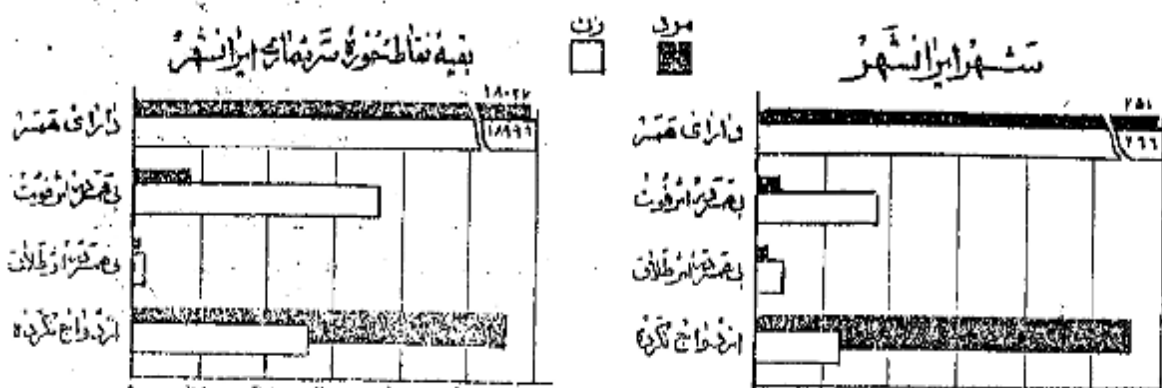 مرد
زن
شهر ایرانشهر
۷۵۱
۷۶۶
دارای همسر
بی همسر بر اثر فوت
بی همسر بر اثر طلاق
ازدواج نکرده
بقیه نقاط حوزه سرشماری ایرانشهر
۱۸۰۲۷
۱۸۹۹۶
دارای همسر
بی همسر بر اثر فوت
بی همسر بر اثر طلاق
ازدواج نکرده